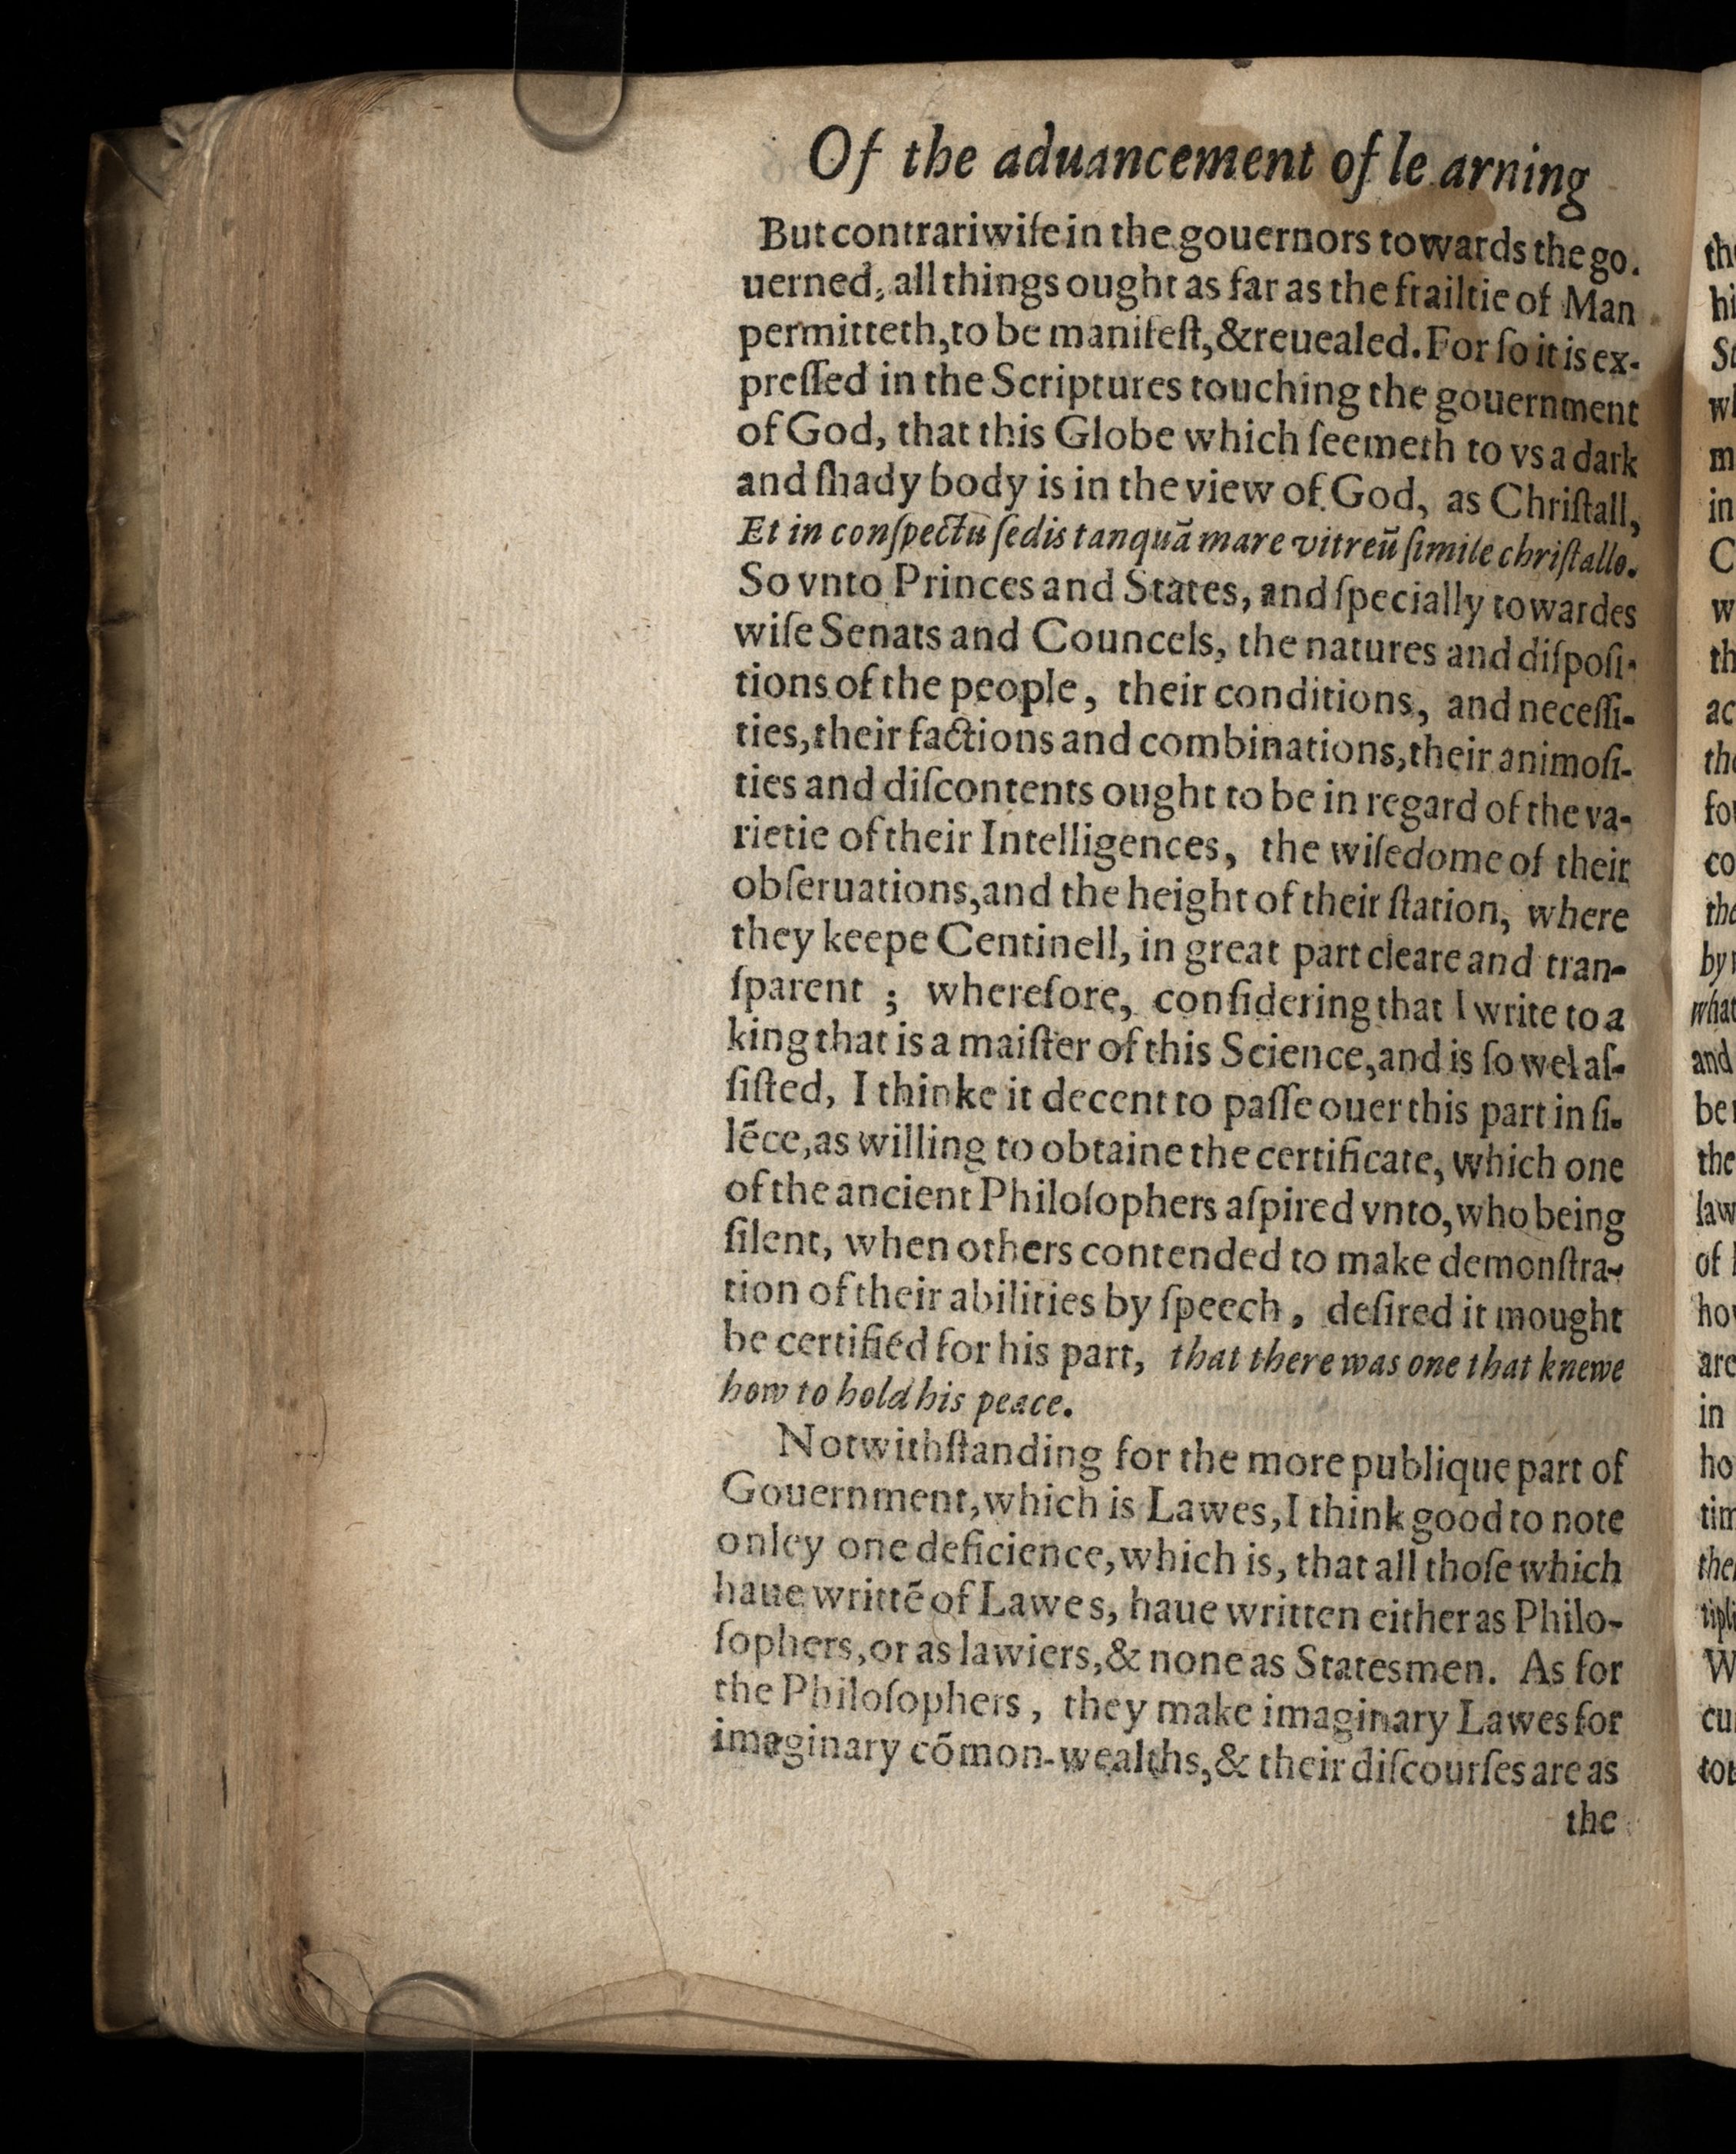 Of the aduancement of le arning
But contrariwiſe in the gouernors towards the go.
uerned, all things ought as far as the frailtie of Man
permitteth, to be manifeſt, & reuealed. For ſo it is ex-
preſſed in the Scriptures touching the gouernment
of God, that this Globe which ſeemeth to vs a dark
and ſhady body is in the view of God, as Chriſtall,
Et in conſpectu ſedis tanquã mare vitreũ ſimile chriſtallo.
So vnto Princes and States, and ſpecially towardes
wiſe Senats and Councels, the natures and diſpoſi-
tions of the people, their conditions, and neceſſi-
ties, their factions and combinations, their animoſi-
ties and diſcontents ought to be in regard of the va-
rietie of their Intelligences, the wiſedome of their
obſeruations, and the height of their ſtation, where
they keepe Centinell, in great part cleare and tran-
ſparent ; wherefore, conſidering that I write to a
king that is a maiſter of this Science, and is ſo wel aſ-
ſiſted, I thinke it decent to paſſe ouer this part in ſi-
lẽce, as willing to obtaine the certificate, which one
of the ancient Philoſophers aſpired vnto, who being
ſilent, when others contended to make demonſtra-
tion of their abilities by ſpeech, deſired it mought
be certified for his part, that there was one that knewe
how to hold his peace.
Notwithſtanding for the more publique part of
Gouernment, which is Lawes, I think good to note
onley one deficience, which is, that all thoſe which
haue writtẽ of Lawes, haue written either as Philo-
ſophers, or as lawiers, & none as Statesmen. As for
the Philoſophers, they make imaginary Lawes for
imaginary cõmon-wealths, & their diſcourſes are as
the